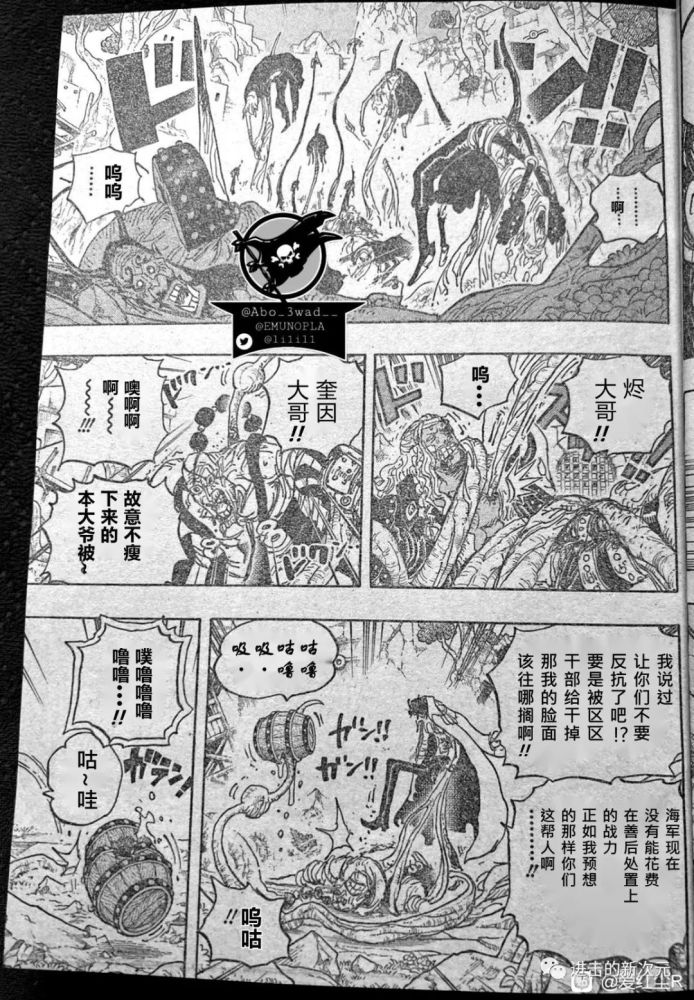 ドン!!
…………
…啊…
呜呜
………
@Abo_3wad__
@EMUNOPLA
@lilill
烬
大哥!!
呜…
ドクン!!
奎因
大哥!!
噢啊啊
啊~~~!!!
故意不瘦
下来的
本大爷被~
ドクン!!
我说过
让你们不要
反抗了吧!?
要是被区区
干部给干掉
那我的脸面
该往哪搁啊!!
海军现在
没有能花费
在善后处置上
的战力
正如我预想
的那样你们
这帮人啊
…………!!
吸吸咕咕
··噜噜
ガブ!!
ガブ!!
呜咕!!
噗噜噜噜
噜噜…!!
咕~哇
ガラン!!
进击的新次元
@爱红尘R